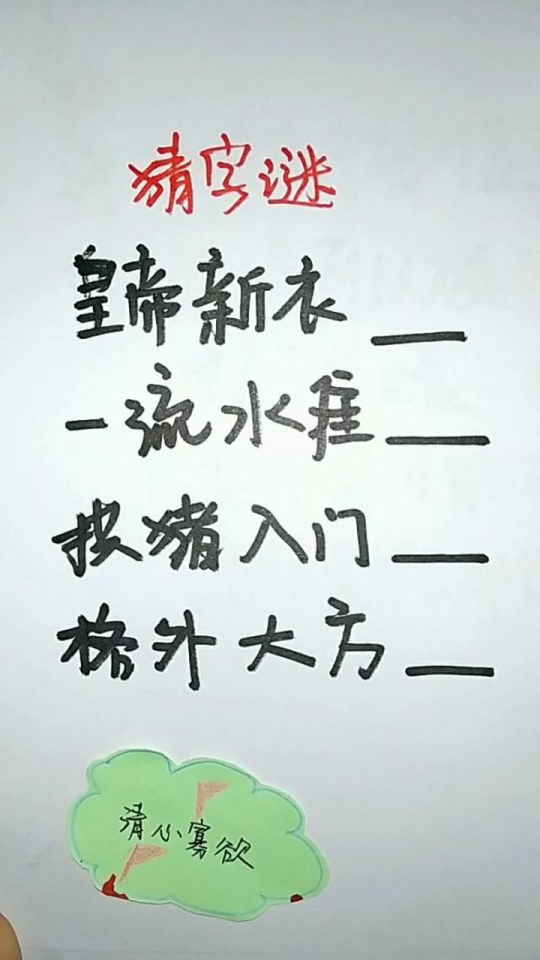 猜字谜
皇帝新衣
一流水准
按猪入门
格外大方
清心寡欲